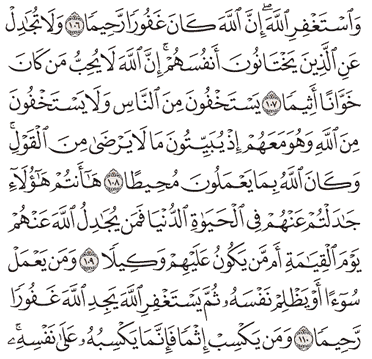 وَٱسْتَغْفِرِ ٱللَّهَ ۖ إِنَّ ٱللَّهَ كَانَ غَفُورًا رَّحِيمًا ١٠٦ وَلَا تُجَٰدِلْ
عَنِ ٱلَّذِينَ يَخْتَانُونَ أَنفُسَهُمْ ۚ إِنَّ ٱللَّهَ لَا يُحِبُّ مَن كَانَ
خَوَّانًا أَثِيمًا ١٠٧ يَسْتَخْفُونَ مِنَ ٱلنَّاسِ وَلَا يَسْتَخْفُونَ
مِنَ ٱللَّهِ وَهُوَ مَعَهُمْ إِذْ يُبَيِّتُونَ مَا لَا يَرْضَىٰ مِنَ ٱلْقَوْلِ ۚ
وَكَانَ ٱللَّهُ بِمَا يَعْمَلُونَ مُحِيطًا ١٠٨ هَٰٓأَنتُمْ هَٰٓؤُلَآءِ
جَٰدَلْتُمْ عَنْهُمْ فِى ٱلْحَيَوٰةِ ٱلدُّنْيَا فَمَن يُجَٰدِلُ ٱللَّهَ عَنْهُمْ
يَوْمَ ٱلْقِيَٰمَةِ أَم مَّن يَكُونُ عَلَيْهِمْ وَكِيلًا ١٠٩ وَمَن يَعْمَلْ
سُوٓءًا أَوْ يَظْلِمْ نَفْسَهُۥ ثُمَّ يَسْتَغْفِرِ ٱللَّهَ يَجِدِ ٱللَّهَ غَفُورًا
رَّحِيمًا ١١٠ وَمَن يَكْسِبْ إِثْمًا فَإِنَّمَا يَكْسِبُهُۥ عَلَىٰ نَفْسِهِۦ ۚ